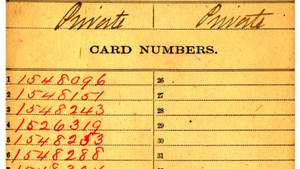 Private Private
CARD NUMBERS.
1 1548096 26
2 1548151 27
3 1548243 28
4 1526319 29
5 1548253 30
6 1548288 31